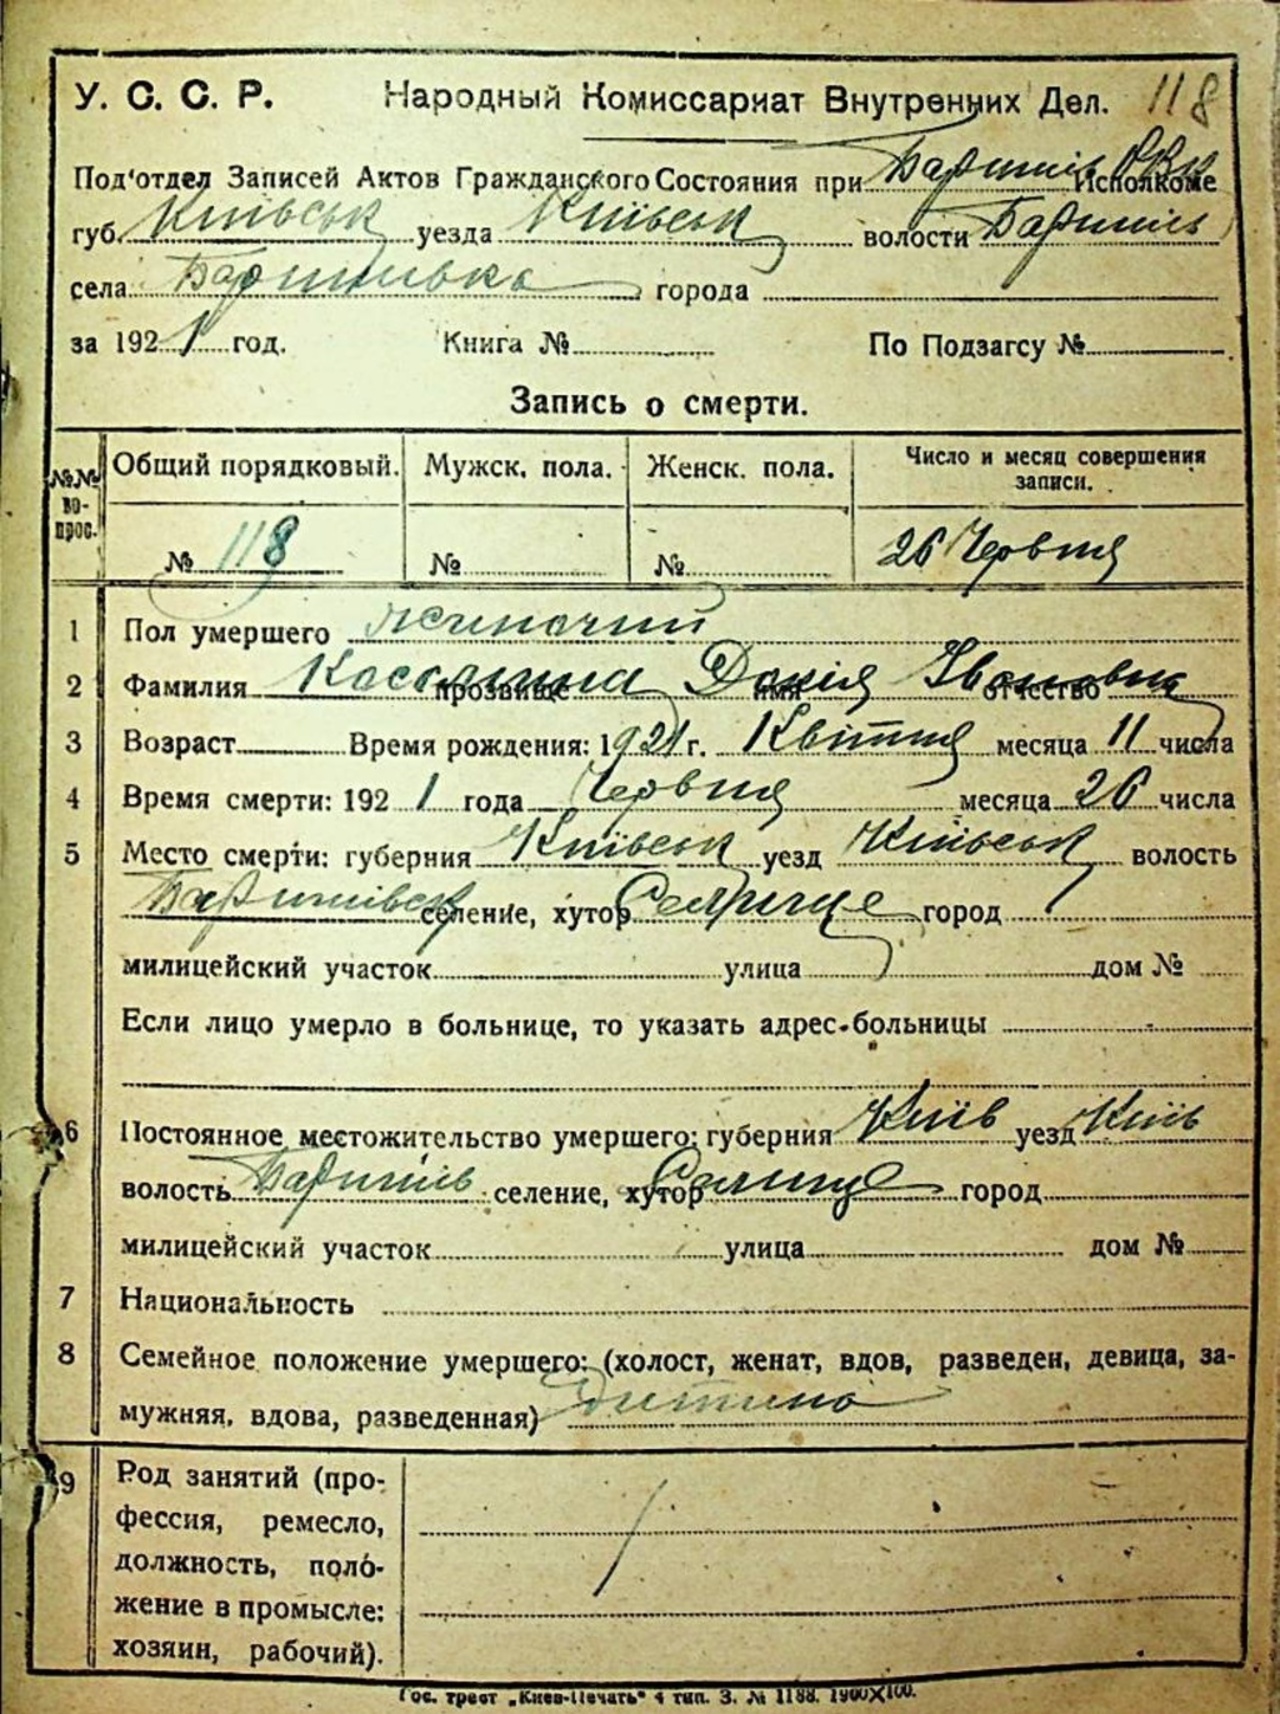 У. С. С. Р. Народный Комиссариат Внутренних Дел. 118
Под'отдел Записей Актов Гражданского Состояния при Баришів. Исполкоме
губ. Київськ уезда Київськ волости Баришів
села Баришівка города
за 1921 год. Книга № По Подзагсу №
Запись о смерти.
№№ вопрос. Общий порядковый. Мужск. пола. Женск. пола. Число и месяц совершения
записи.
№ 118 № № 26 Червня
1 Пол умершего жіночий
2 Фамилия прозвище Докія имя Івановна отчество
3 Возраст Время рождения: 1921 г. Квітня месяца 11 числа
4 Время смерти: 1921 года Червня месяца 26 числа
5 Место смерти: губерния Київськ уезд Київськ волость
Баришівськ селение, хутор Селище город
милицейский участок улица дом №
Если лицо умерло в больнице, то указать адрес больницы
6 Постоянное местожительство умершего: губерния Київ уезд Київ
волость Баришів селение, хутор Селище город
милицейский участок улица дом №
7 Национальность
8 Семейное положение умершего: (холост, женат, вдов, разведен, девица, за-
мужняя, вдова, разведенная) дитина
9 Род занятий (про-
фессия, ремесло,
должность, поло-
жение в промысле:
хозяин, рабочий).
Гос. трест „Киев-Печать" 4 тип. З. № 1188. 1900X100.